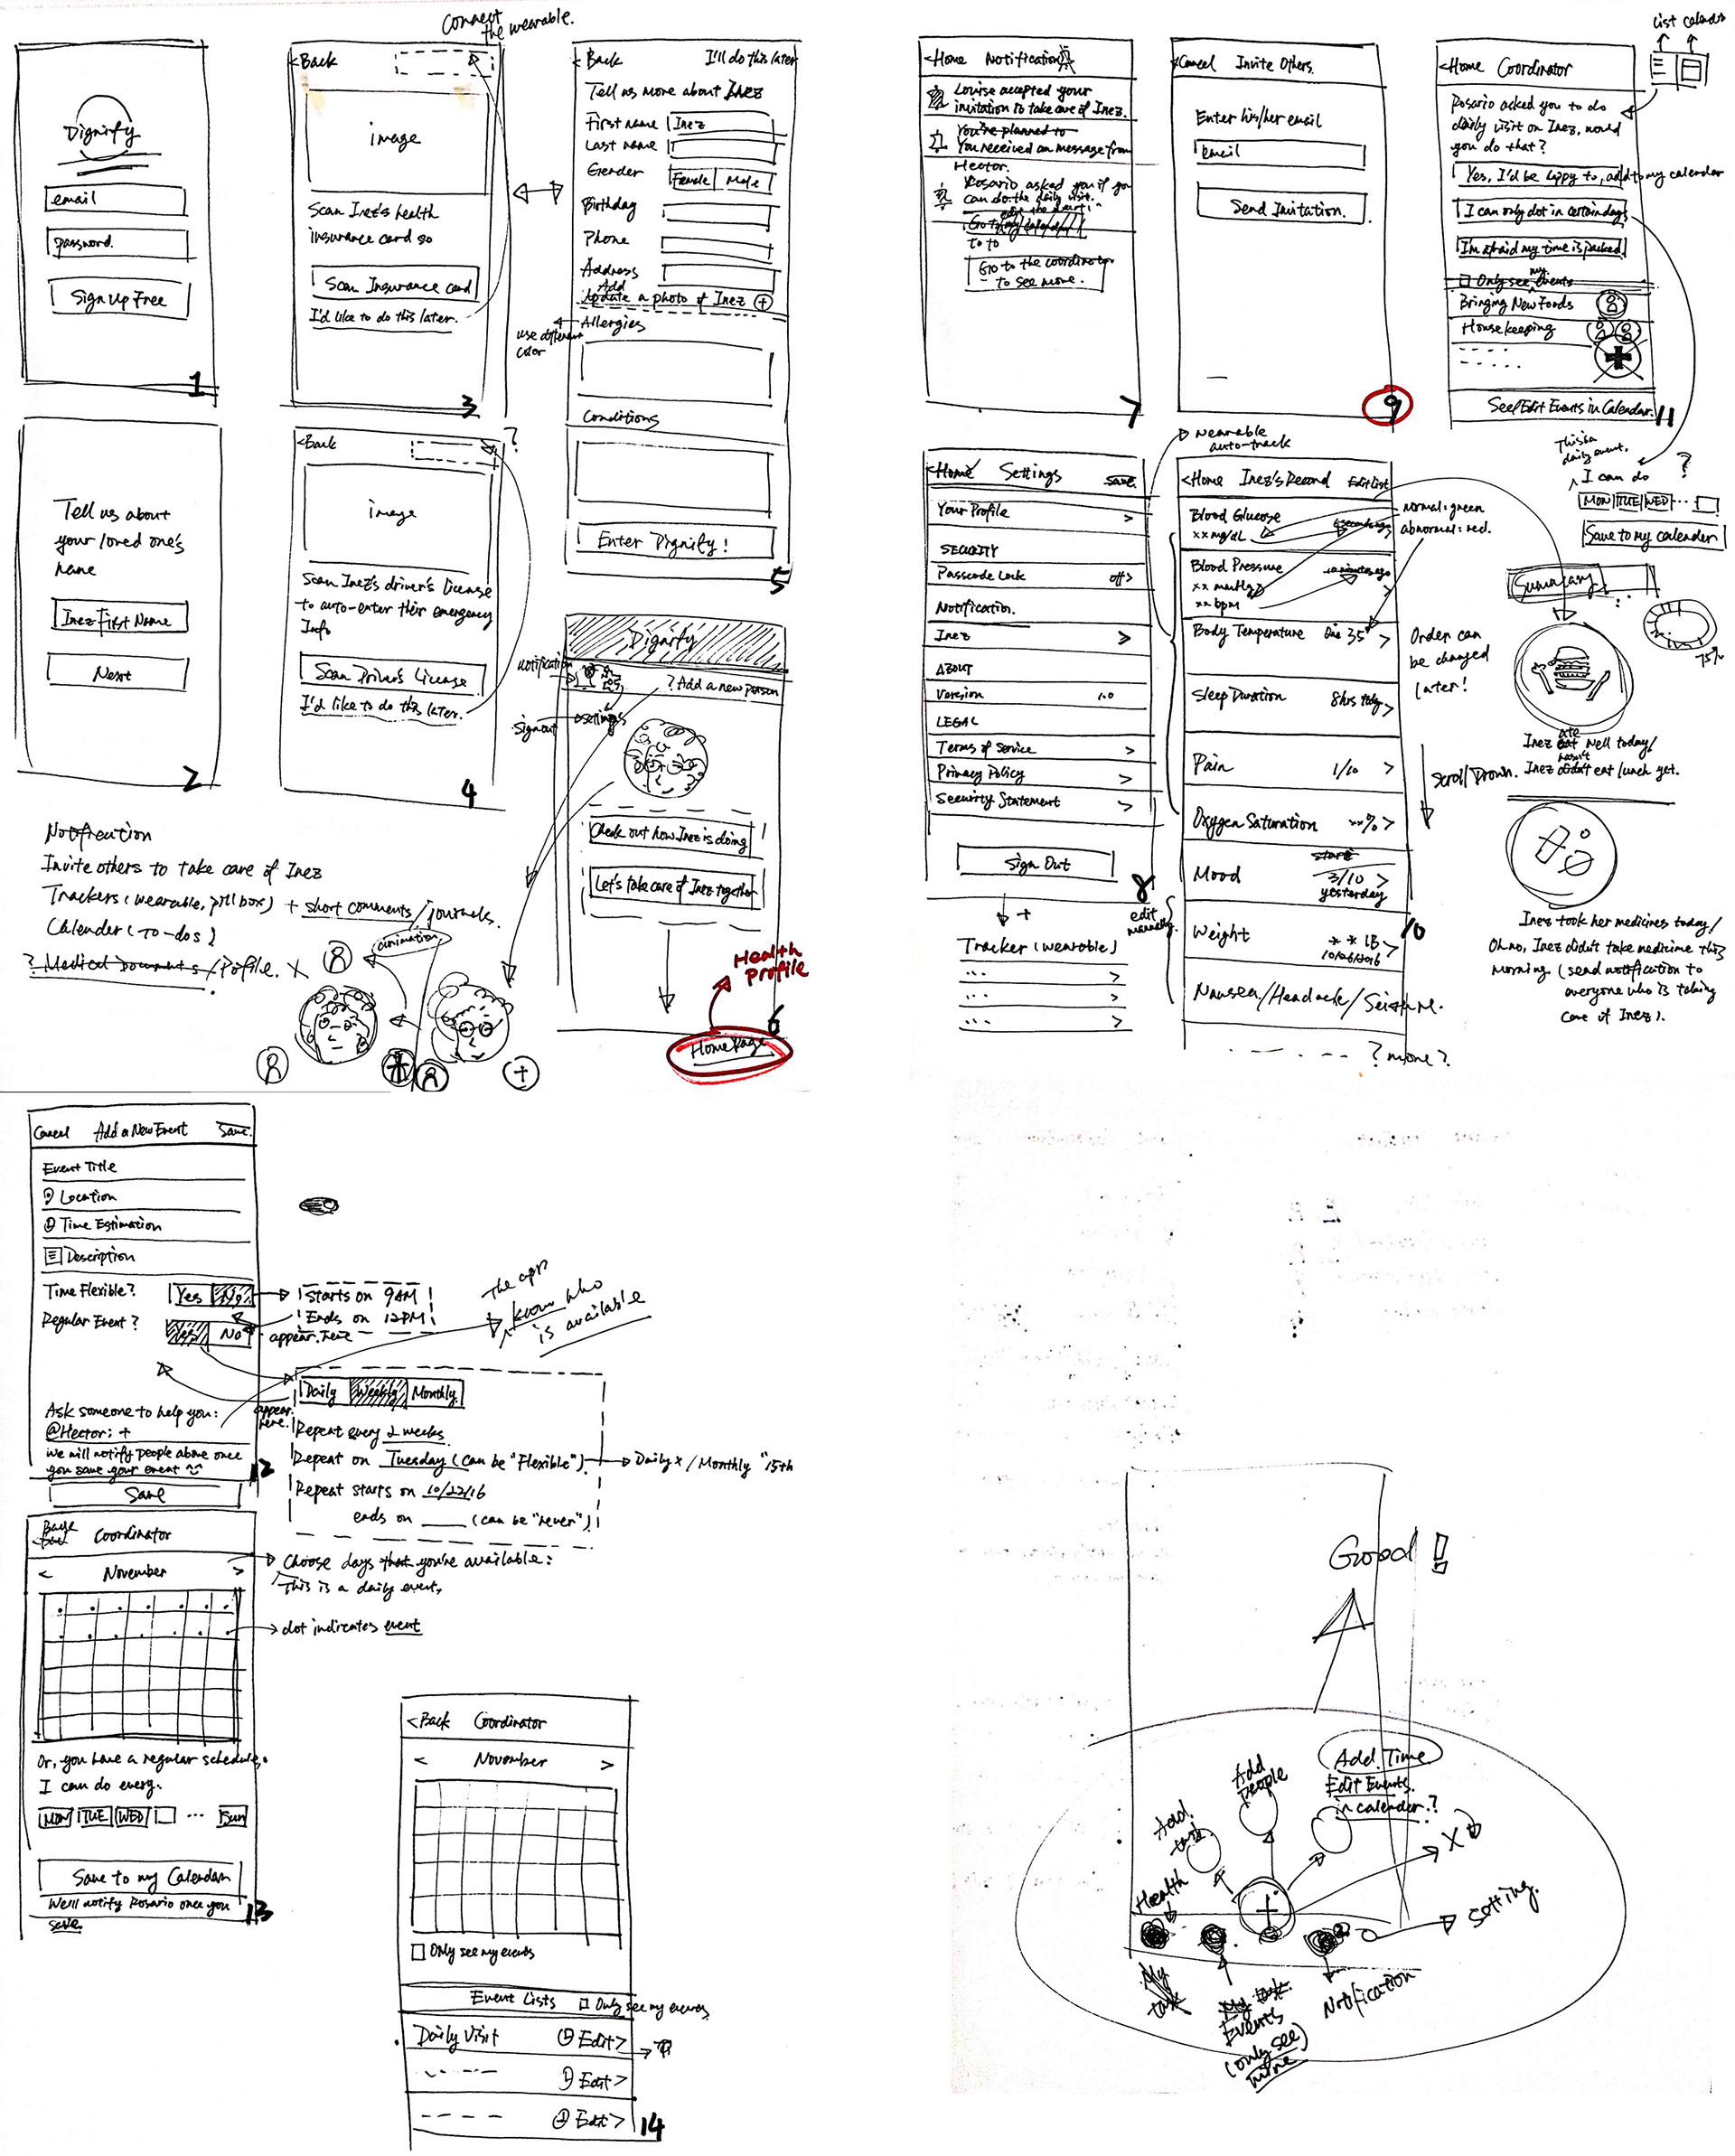 Connect
the wearable.
Dignify
email
password.
Sign Up Free
1
<Back
image
Scan Inez's health
insurance card so
Scan Insurance card
I'd like to do this later.
3
<Back
I'll do this later
Tell us more about Inez
First name Inez
Last name
Gender Female Male
Birthday
Phone
Address
Add
Update a photo of Inez +
use different
color
Allergies
Conditions
Enter Dignify!
5
Tell us about
your loved one's
name
Inez First Name
Next
2
<Back
?
image
Scan Inez's driver's license
to auto-enter their emergency
Info
Scan Driver's License
I'd like to do this later.
4
Dignify
notification
? Add a new person
settings
Signout
Check out how Inez is doing
Let's take care of Inez together
6
Health
Profile
HomePage
Notification
Invite others to take care of Inez
Trackers (wearable, pill box) + short comments/journals.
Calender (To-dos)
? Medical Documents/Pofile. X
animation
<Home Notification
Louise accepted your
invitation to take care of Inez.
You're planned to
You received an message from
Hector.
Rosario asked you if you
can do the daily visit.
Go to the coordinator
to see more.
7
Cancel Invite Others.
Enter his/her email
email
Send Invitation.
9
List calendar
<Home Coordinator
Rosario asked you to do
daily visit on Inez, would
you do that?
Yes, I'd be happy to, add to my calendar
I can only do it in certain days
I'm afraid my time is packed
Only see my events
Bringing New Foods
Housekeeping
See/Edit Events in Calendar.
11
This is a
daily event.
I can do
?
MON TUE WED ...
Save to my calender
<Home Settings Save
Your Profile >
SECURITY
Passcode Lock off>
Notification.
Inez >
ABOUT
Version 1.0
LEGAL
Terms of Service >
Privacy Policy >
Security Statement >
Sign Out
8
+
Tracker (wearable)
... >
... >
... >
wearable
auto-track
edit
manually
<Home Inez's Record Edit list
Blood Glucose
xx mg/dL
Blood Pressure 10 minutes ago
xx mmHg
xx bpm
Body Temperature 35 >
Sleep Duration 8hrs >
Pain 1/10 >
Oxygen Saturation **% >
Mood 3/10 >
yesterday
Weight ** LB
10/26/2016
10
Nausea/Headache/Seizure.
? more?
normal=green
abnormal=red.
Order can
be changed
later!
Scroll Down.
Summary
75%
Inez ate well today/
Inez hasn't eat lunch yet.
Inez took her medicines today/
Oh no, Inez didn't take medicine this
morning. (send notification to
everyone who is taking
care of Inez).
Cancel Add a New Event Save
Event Title
Location
Time Estimation
Description
Time Flexible? Yes No
Regular Event? Yes No
Starts on 9AM
Ends on 12PM
appear here
The app
know who
is available
Daily Weekly Monthly
appear
here.
Repeat every 2 weeks
Repeat on Tuesday (can be "Flexible") → Daily x / Monthly "15th
Repeat starts on 10/22/16
ends on ____ (can be "never")
Ask someone to help you:
@Hector; +
we will notify people above once
you save your event
12
Save
Coordinator
< November >
Choose days that you're available:
This is a daily event,
dot indicates event
Or, you have a regular schedule,
I can do every.
MON TUE WED ... Sun
Save to my Calendar
We'll notify Rosario once you
save
13
<Back Coordinator
< November >
Only see my events
Event Lists Only see my events
Daily Visit Edit>
Edit>
Edit>
14
Good!
Add Time
Edit Events
in calender.?
Add
People
Add
task
Health
X
setting.
My
task
My task
Events
(only see
mine)
Notification